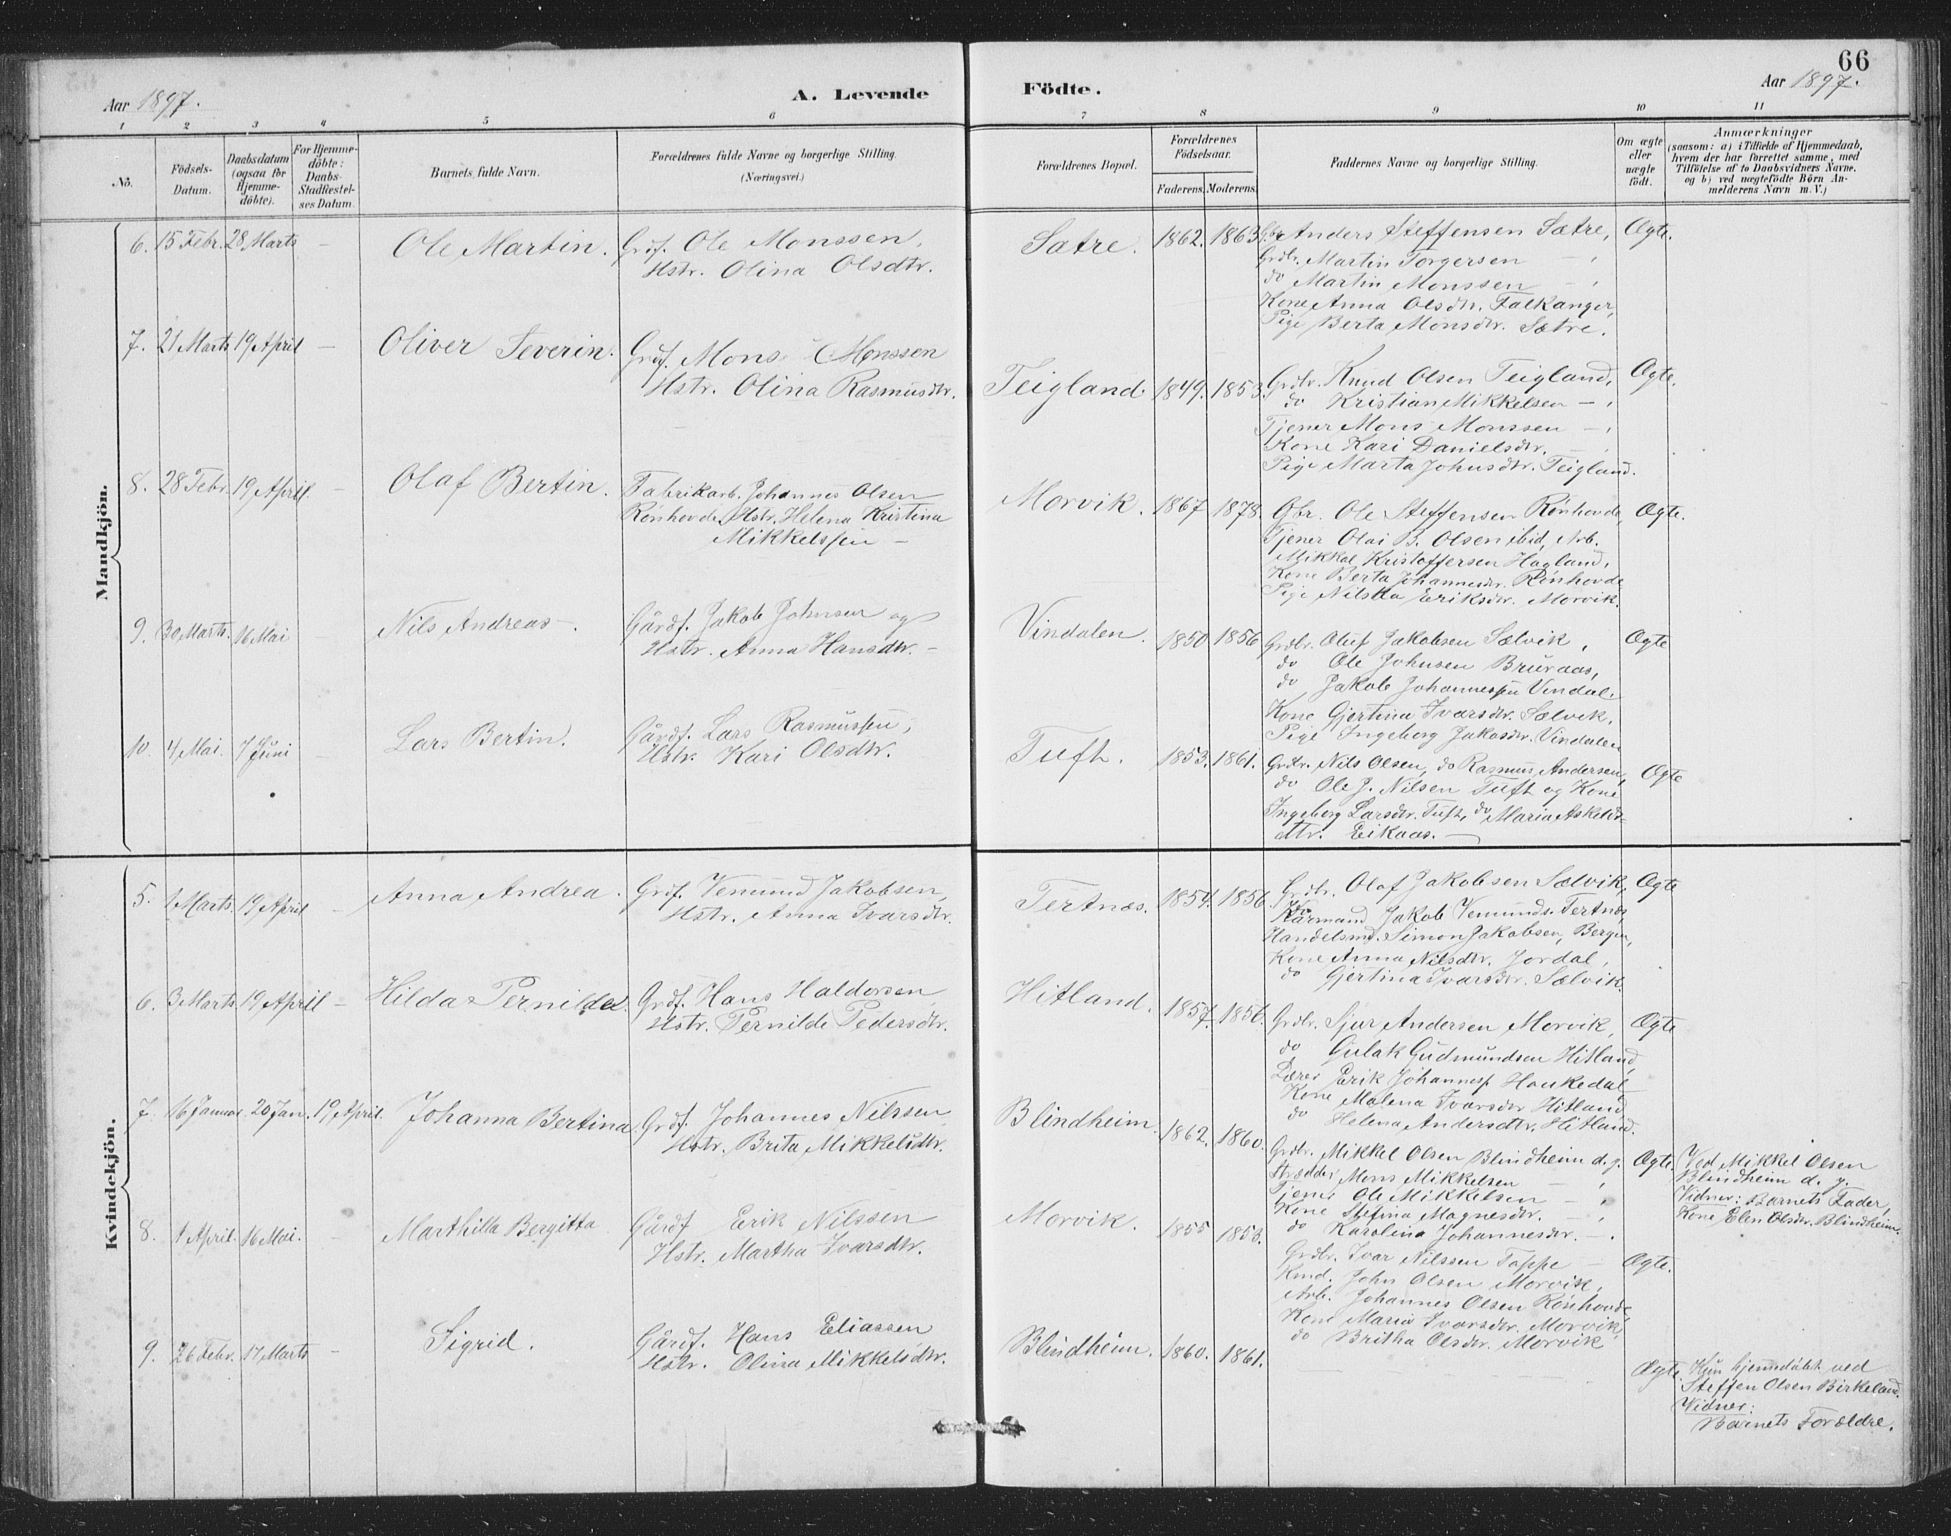 66
Aar 1897.
A. Levende
Födte.
Aar 1897.
1 2 3 4 5 6 7 8 9 10 11
No.
Födsels-
Datum.
Daabsdatum
(ogsaa for
Hjemme-
döbte).
For Hjemme-
döbte:
Daabs-
Stadfæstel-
ses Datum.
Barnets fulde Navn.
Forældrenes fulde Navne og borgerlige Stilling.
(Næringsvei.)
Forældrenes Bopæl.
Forældrenes
Födselsaar.
Faderens. Moderens.
Faddernes Navne og borgerlige Stilling.
Om ægte
eller
uægte
födt.
Anmærkninger
(saasom: a) i Tilfælde af Hjemmedaab,
hvem der har forrettet samme, med
Tilföielse af to Daabsvidners Navne.
og b) ved uægtefödte Börn An-
melderens Navn m. V.)
Mandkjön.
6. 15 Febr. 28 Marts – Ole Martin. Grdf. Ole Monssen,
Hstr. Olina Olsdtr.
Sætre. 1862. 1863. Gbr. Anders Steffensen Sætre, Ægte.
Grdbr. Martin Torgersen –
do Martin Monssen –
Kone Anna Olsdtr. Falkanger,
Pige Berta Monsdtr. Sætre.
7. 21 Marts 19 April – Oliver Severin. Grdf. Mons Monssen
Hstr. Olina Rasmusdtr.
Teigland. 1849. 1853. Grdbr. Knud Olsen Teigland, Ægte.
do Kristian Mikkelsen –
Tjener Mons Monssen –
Kone Kari Danielsdtr. –
Pige Marta Johnsdtr. Teigland.
8. 28 Febr. 19 April – Olaf Bertin. Fabrikarb. Johannes Olsen
Rönhovde, Hstr. Helena Kristina
Mikkelssen –
Morvik. 1867 1878. Gbr. Ole Steffensen Rönhovde, Ægte.
Tjener Olai B. Olsen ibid, Arb.
Mikkal Kristoffersen Hagland,
Kone Berta Johannesdtr. Rönhovde
Pige Nilska Eriksdtr. Morvik.
9. 30 Marts. 16 Mai – Nils Andreas –. Gårdf. Jakob Johnsen og
Hstr. Anna Hansdtr. –
Vindalen. 1850 1856 Grdbr. Oluf Jakobsen Sælvik, Ægte
do Ole Johnsen Bruraas,
do Jakob Johannessen Vindal.
Kone Gjertina Ivarsdtr. Sælvik,
Pige Ingeborg Jakobsdtr. Vindalen
10. 4 Mai. 7 Juni – Lars Bertin. Gårdf. Lars Rasmussen,
Hstr. Kari Olsdtr.
Tuft. 1853. 1861. Grdbr. Nils Olsen, do Rasmus Andersen, Ægte
do Ole J. Nilsen Tuft og Kone
Ingeborg Larsdtr. Tuft, do Maria Askelds-
dtr. Eikaas. –
Kvindekjön.
5. 1 Marts 19 April – Anna Andrea. Grdf. Vemund Jakobsen,
Hstr. Anna Ivarsdtr.
Tertnæs. 1854. 1856 Grdbr. Olaf Jakobsen Sælvik, Ægte
Kårmand Jakob Vemunds. Tertnæs,
Handelsmd. Simon Jakobsen, Bergen,
Kone Anna Nilsdtr. Jordal,
do Gjertina Ivarsdtr. Sælvik.
6. 3 Marts 19 April – Hilda Pernilda. Grdf. Hans Haldorsen
Hstr. Pernilde Pedersdtr.
Hitland. 1857. 1856. Grdbr. Sjur Andersen Morvik, Ægte
do Gulak Gudmundsen Hitland,
Lærer Erik Johanness. Haukedal
Kone Malena Ivarsdtr Hitland
do Helena Andersdtr. Hitland.
7. 16 Januar 20 Jan. 19 April. Johanna Bertina Grdf. Johannes Nilssen
Hstr. Brita Mikkelsdtr.
Blindheim. 1862. 1860. Grdbr. Mikkel Olsen Blindheim d. y. Ægte.
Skrædder Mons Mikkelsen –
Tjener Ole Mikkelsen –
Kone Stefina Magnesdtr. –
do Karolina Johannesdtr. –
Ved Mikkel Olsen
Blindheim d. y.
Vidner: Barnets Fader,
Kone Elen Olsdtr. Blindheim.
8. 1 April. 16 Mai. – Marthilla Bergitta Gårdf Erik Nilssen
Hstr. Martha Ivarsdtr.
Morvik. 1855 1853. Grdbr. Ivar Nilssen Toppe – Ægte.
Kmd. John Olsen Morvik,
Arb. Johannes Olsen Rönhovde
Kone Maria Ivarsdtr. Morvik,
do Britha Olsdtr. Morvik
9. 26 Febr. 17 Marts – Sigrid. Gårdf. Hans Eliassen
Hstr. Olina Mikkelsdtr.
Blindheim. 1860. 1861. Ægte. Kun hjemdöbt ved
Steffen Olsen Birkeland.
Vidner:
Barnets Forældre.